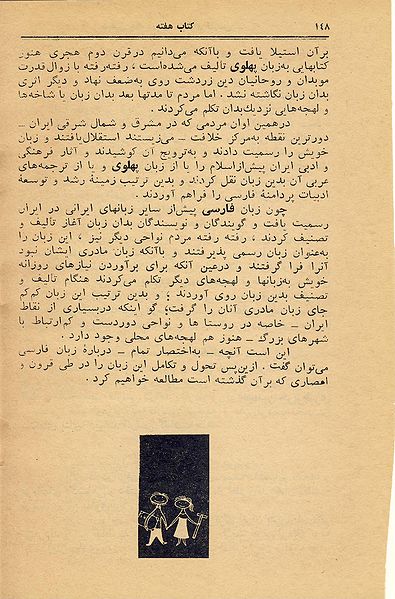 ۱۴۸
کتاب هفته
برآن استیلا یافت و باآنکه می‌دانیم درقرن دوم هجری هنوز
کتابهایی به‌زبان پهلوی تالیف می‌شده‌است ، رفته‌رفته با زوال‌قدرت
موبدان و روحانیان دین زردشت روی به‌ضعف نهاد و دیگر اثری
بدان زبان نگاشته نشد . اما مردم تا مدتها بعد بدان زبان یا شاخه‌ها
و لهجه‌هایی نزدیك‌بدان تکلم می‌کردند .
درهمین اوان مردمی که در مشرق و شمال شرقی ایران –
دورترین نقطه به‌مرکز خلافت – می‌زیستند استقلال‌یافتند و زبان
خویش را رسمیت دادند و به‌ترویج آن کوشیدند و آثار فرهنگی
و ادبی ایران پیش‌ازاسلام را یا از زبان پهلوی و یا از ترجمه‌های
عربی آن بدین زبان نقل کردند و بدین ترتیب زمینهٔ رشد و توسعهٔ
ادبیات پردامنهٔ فارسی را فراهم آوردند .
چون زبان فارسی پیش‌از سایر زبانهای ایرانی در ایران
رسمیت یافت و گویندگان و نویسندگان بدان زبان آغاز تالیف و
تصنیف کردند ، رفته رفته مردم نواحی دیگر نیز ، این زبان را
به‌عنوان زبان رسمی پذیرفتند و باآنکه زبان مادری ایشان نبود
آنرا فرا گرفتند و درعین آنکه برای برآوردن نیازهای روزانه
خویش به‌زبانها و لهجه‌های دیگر تکلم می‌کردند هنگام تالیف و
تصنیف بدین زبان روی آوردند ؛ و بدین ترتیب این زبان کم‌کم
جای زبان مادری آنان را گرفت؛ گو اینکه دربسیاری از نقاط
ایران – خاصه در روستا ها و نواحی دوردست و کم‌ارتباط با
شهرهای بزرگ – هنوز هم لهجه‌های محلی وجود دارد .
این است آنچه – به‌اختصار تمام – دربارهٔ زبان فارسی
می‌توان گفت . ازین‌پس تحول و تکامل این زبان را در طی قرون و
اعصاری که برآن گذشته است مطالعه خواهیم کرد .